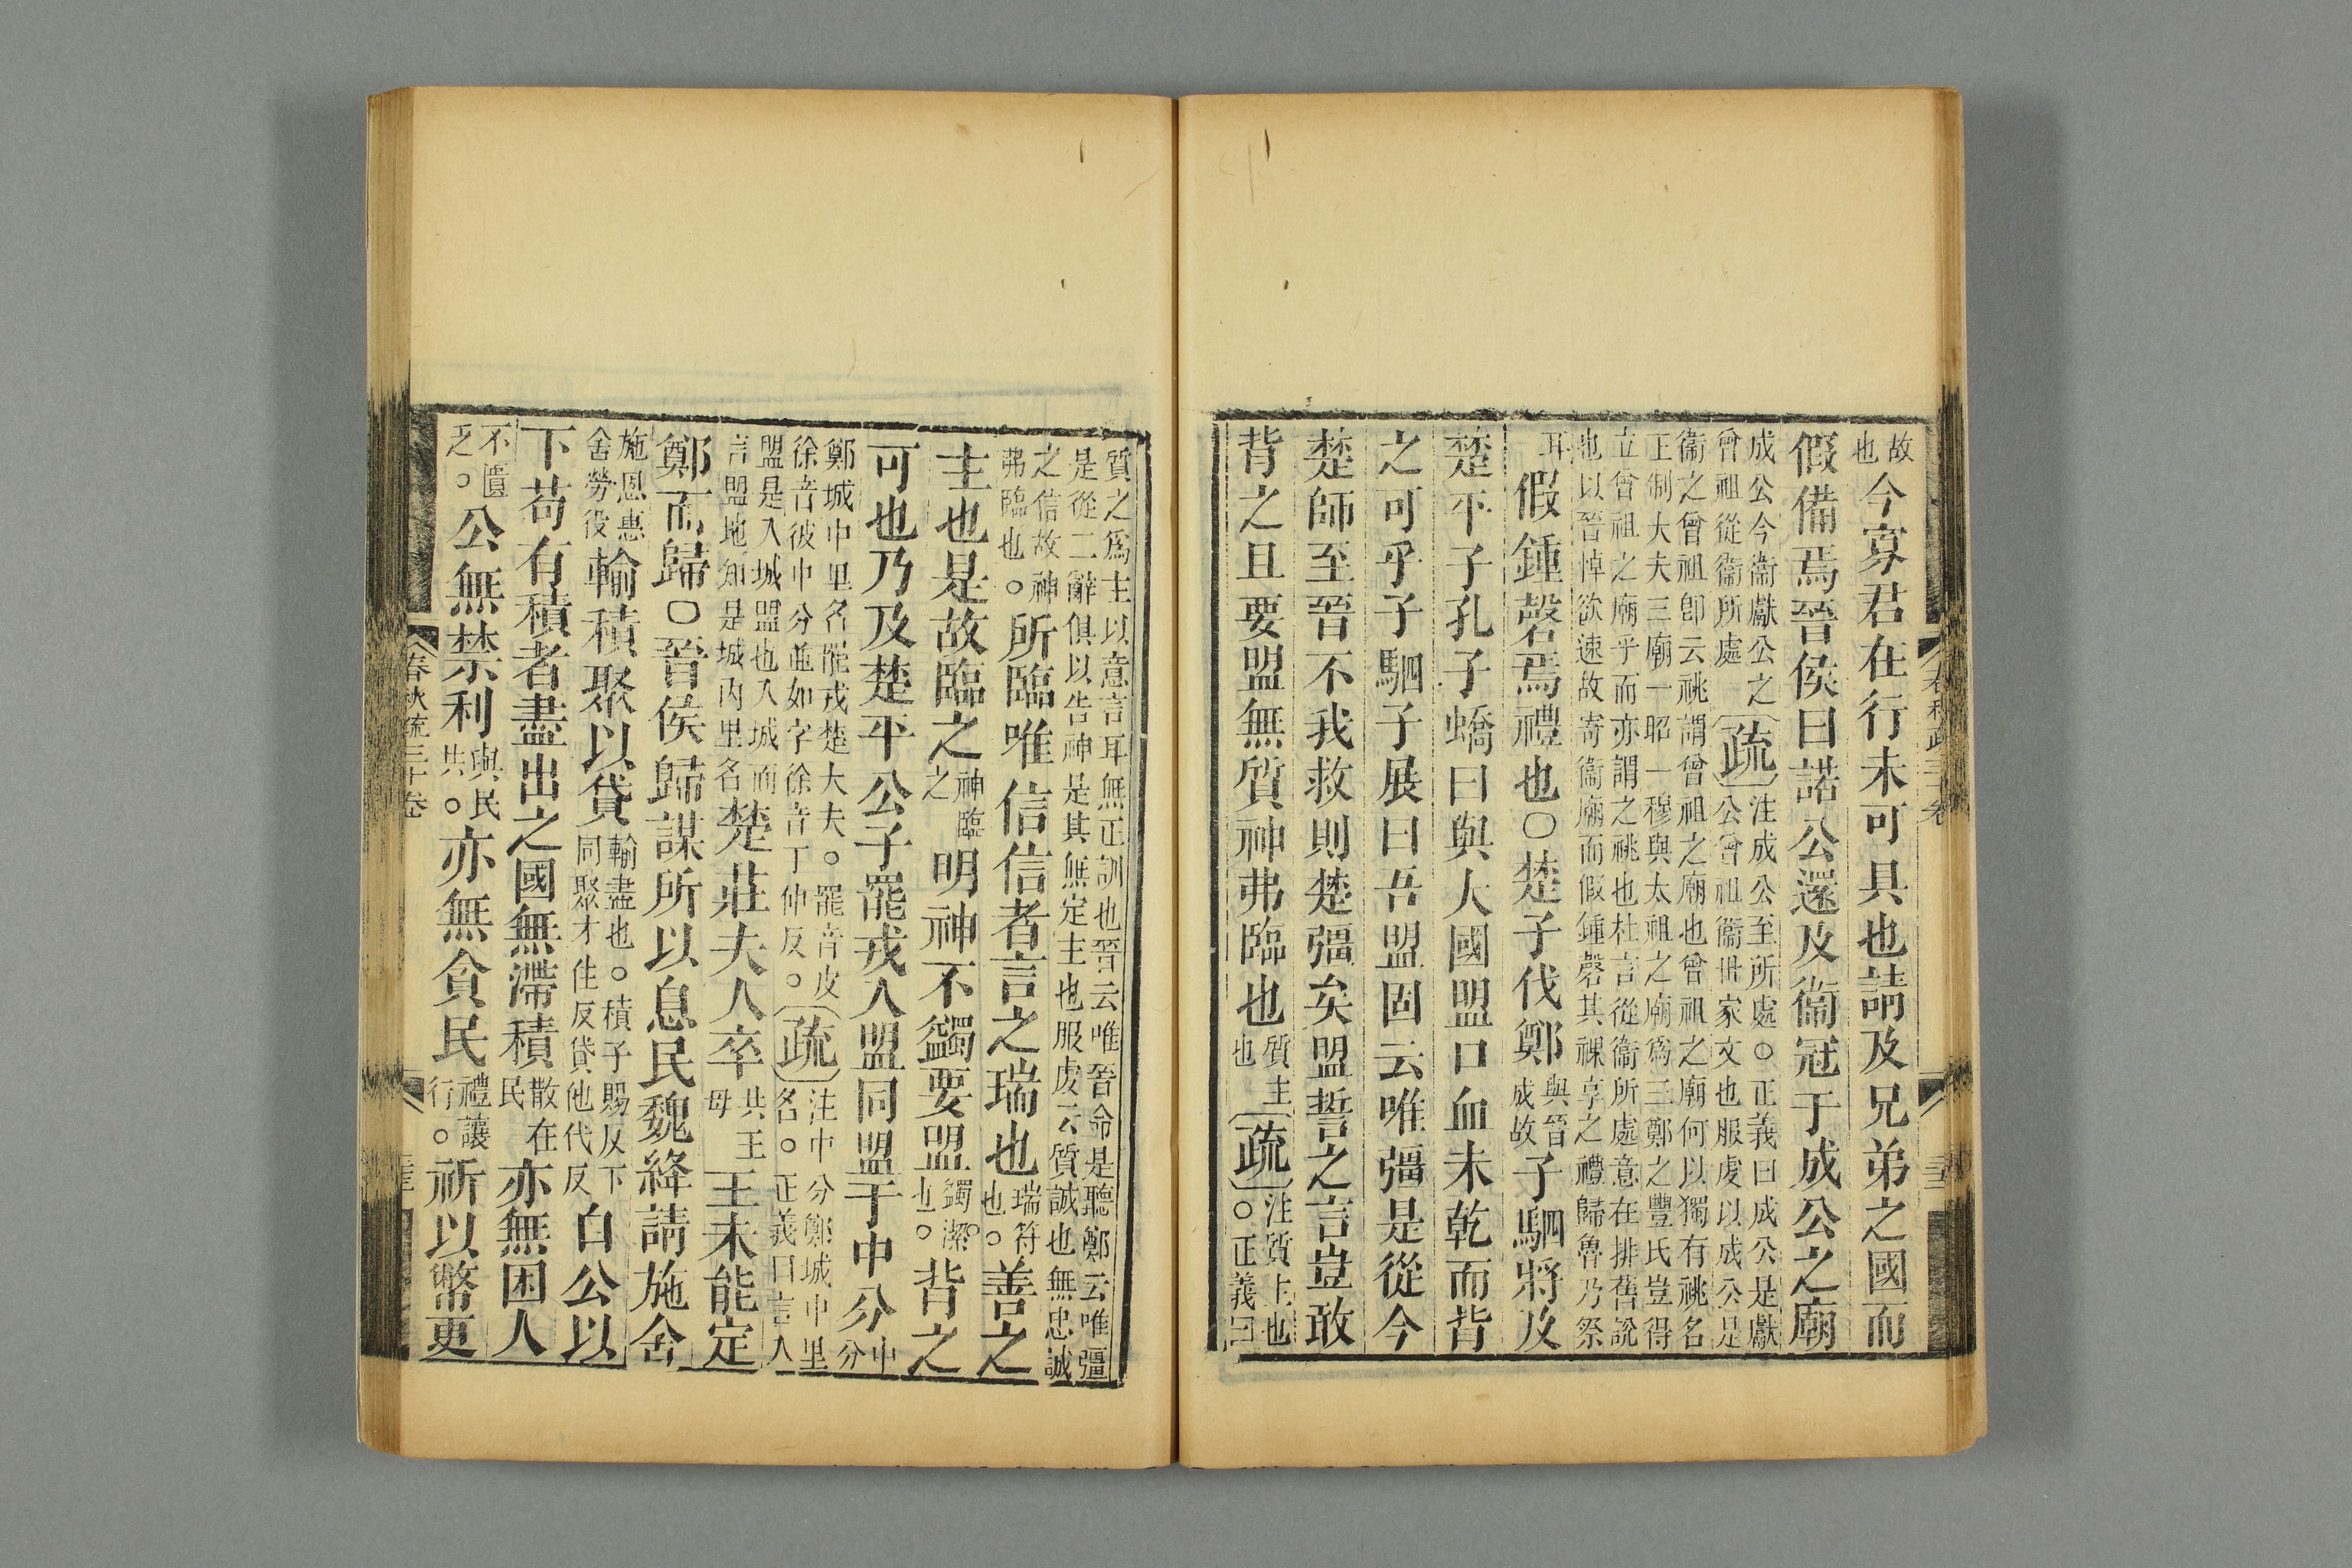 故
也
今寡君在行未可具也請及兄弟之國而
假備焉晉侯曰諾公還及衞冠于成公之廟
成公今衞獻公之
曾祖從衞所處
疏
注成公至所處○正義曰成公是獻
公曾祖衞世家文也服虔以成公是
衞之曾祖卽云祧謂曾祖之廟也曾祖之廟何以獨有祧名
正制大夫三廟一昭一穆與太祖之廟爲三鄭之豐氏豈得
立曾祖之廟乎而亦謂之祧也杜言從衞所處意在排舊說
也以晉悼欲速故寄衞廟而假鍾磬其祼享之禮歸魯乃祭
耳
假鍾磬焉禮也○楚子伐鄭
與晉
成故
子駟將及
楚平子孔子蟜曰與大國盟口血未乾而背
之可乎子駟子展曰吾盟固云唯彊是從今
楚師至晉不我救則楚彊矣盟誓之言豈敢
背之且要盟無質神弗臨也
質主
也
疏
注質主也
○正義曰
質之爲主以意言耳無正訓也晉云唯晉命是聽鄭云唯彊
是從二辭俱以告神是其無定主也服虔云質誠也無忠誠
之信故神
弗臨也○
所臨唯信信者言之瑞也
瑞符
也○
善之
主也是故臨之
神臨
之
明神不蠲要盟
蠲潔
也○
背之
可也乃及楚平公子罷戎入盟同盟于中分
中
分
鄭城中里名罷戎楚大夫○罷音皮
徐音彼中分並如字徐音丁仲反○
疏
注中分鄭城中里
名○正義曰言入
盟是入城盟也入城而
言盟地知是城內里名
楚莊夫人卒
共王
母
王未能定
鄭而歸○晉侯歸謀所以息民魏絳請施舍
施恩惠
舍勞役
輸積聚以貸
輸盡也○積子賜反下
同聚才住反貸他代反
自公以
下苟有積者盡出之國無滯積
散在
民
亦無困人
不匱
乏○
公無禁利
與民
共○
亦無貪民
禮讓
行○
祈以幣更
春秋疏三十卷